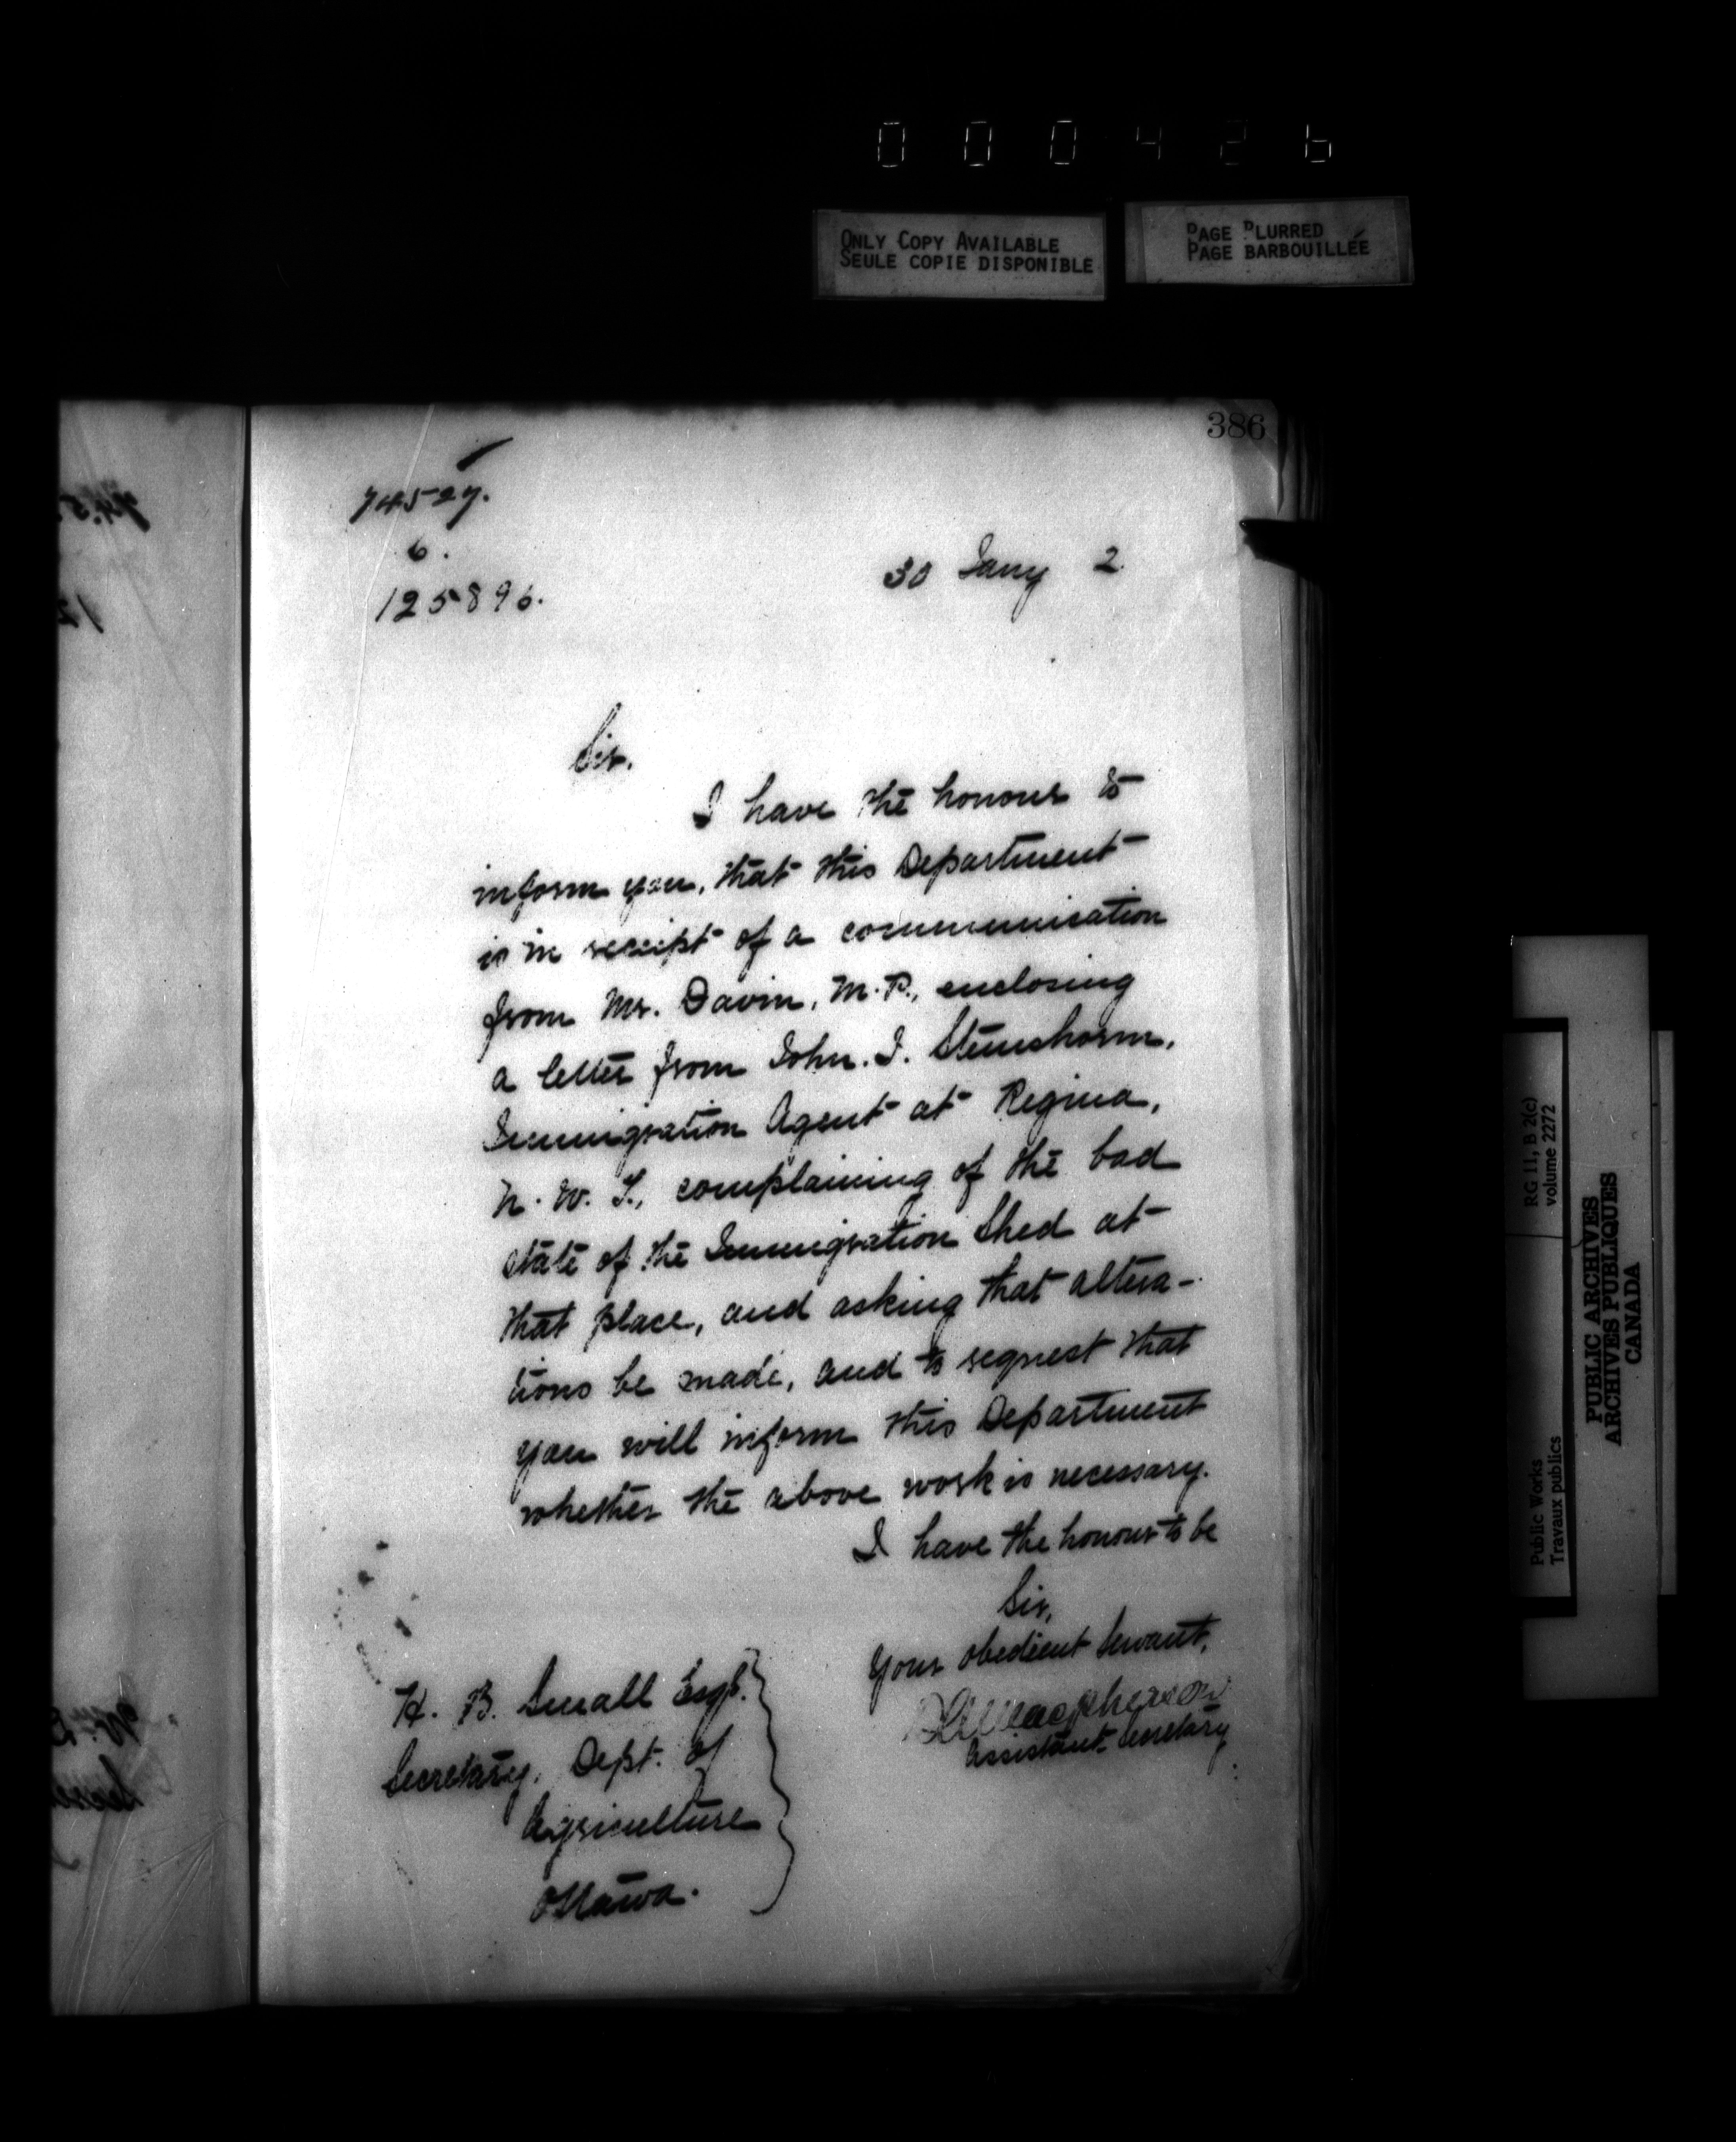 000426
ONLY COPY AVAILABLE
SEULE COPIE DISPONIBLE
PAGE BLURRED
PAGE BARBOUILLÉE
386
74527.
6.
125896.
30 Jany 2
Sir.
I have the honour to
inform you, that this Department
is in receipt of a communication
from Mr. Davin, M.P., enclosing
a letter from John. J. Stemshorm,
Immigration Agent at Regina,
N. W. T., complaining of the bad
state of the Immigration Shed at
that place, and asking that altera-
tions be made, and to request that
you will inform this Department
whether the above work is necessary.
I have the honour to be
Sir,
Your obedient Servant,
Assistant Secretary
H. B. Small Esqr.
Secretary, Dept. of
Agriculture
Ottawa.
Public Works
Travaux publics
RG 11, B 2(c)
volume 2272
PUBLIC ARCHIVES
ARCHIVES PUBLIQUES
CANADA